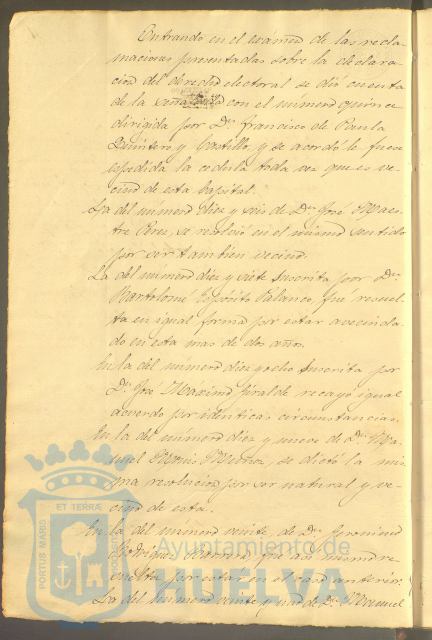 Entrando en el examen de las recla
maciones presentadas sobre la declara
cion del derecho electoral se dió cuenta
de la señalada con el número quince
dirigida por Dn. Francisco de Paula
Quintero y Castillo, y se acordó le fuese
espedida la cedula toda vez que es ve-
cino de esta Capital.
La del número diez y seis de Dn. José Maes
tre Perez, se resolvió en el mismo sentido
por ser tambien vecino.
La del número diez y siete suscrita por Dn.
Bartolomé Esposito Palanco, fue resuel
ta en igual forma por estar avecinda
do en esta mas de dos años.
En la del número diez y ocho suscrita por
Dn. José Máximo Giralde recayó igual
acuerdo por identicas circunstancias.
En la del número diez y nueve de Dn. Ma
nuel se dictó la mis
ma resolucion por ser natural y ve-
cino de esta.
En la del número veinte, de Dn. Geronimo
Rodriguez
por estar en el caso anterior.
La del número veinte y uno de Dn. Manuel
ET TERRÆ
PORTUS MARIS
CUSTODIA
Ayuntamiento de
HUELVA